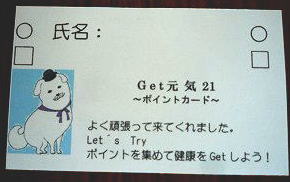 氏名:
Get元気21
～ポイントカード～
よく頑張って来てくれました。
Let´s Try
ポイントを集めて健康をGetしよう!